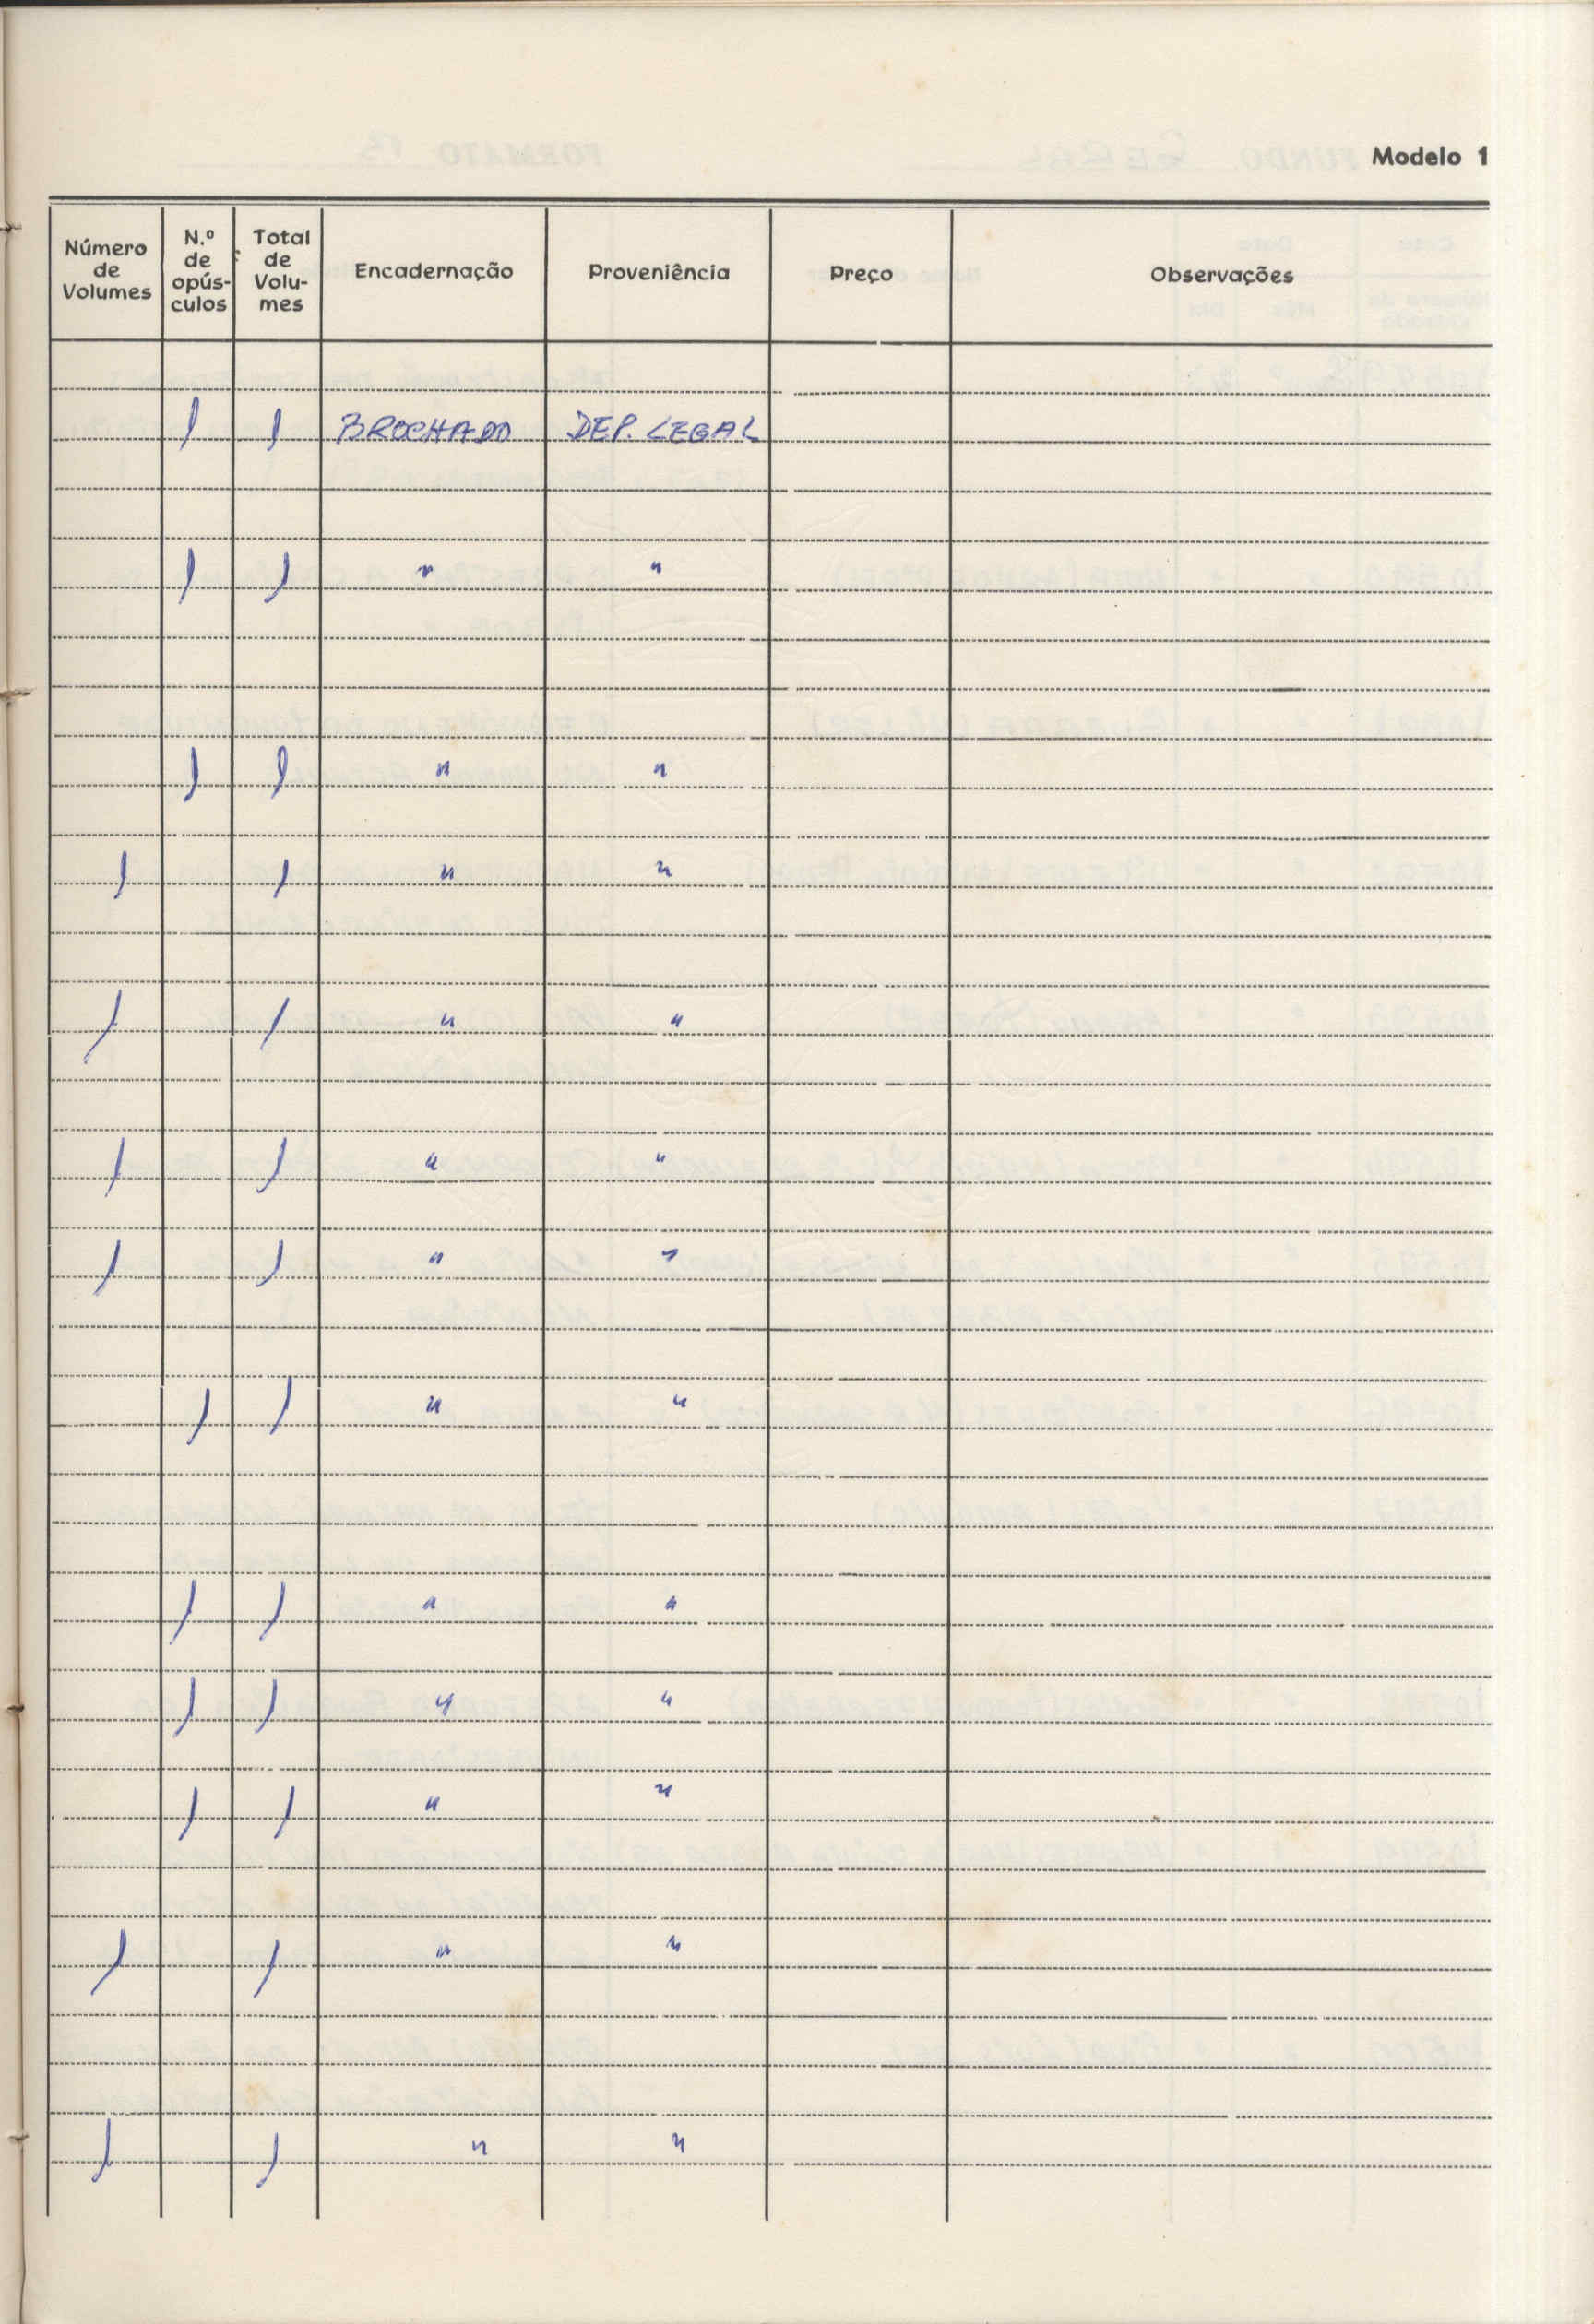 Modelo 1
Número de Volumes N.º de opús-culos Total de Volu-mes Encadernação Proveniência Preço Observações
1 1 BROCHADO DEP. LEGAL
1 1 " "
1 1 " "
1 1 " "
1 1 " "
1 1 " "
1 1 " "
1 1 " "
1 1 " "
1 1 " "
1 1 " "
1 1 " "
1 1 " "